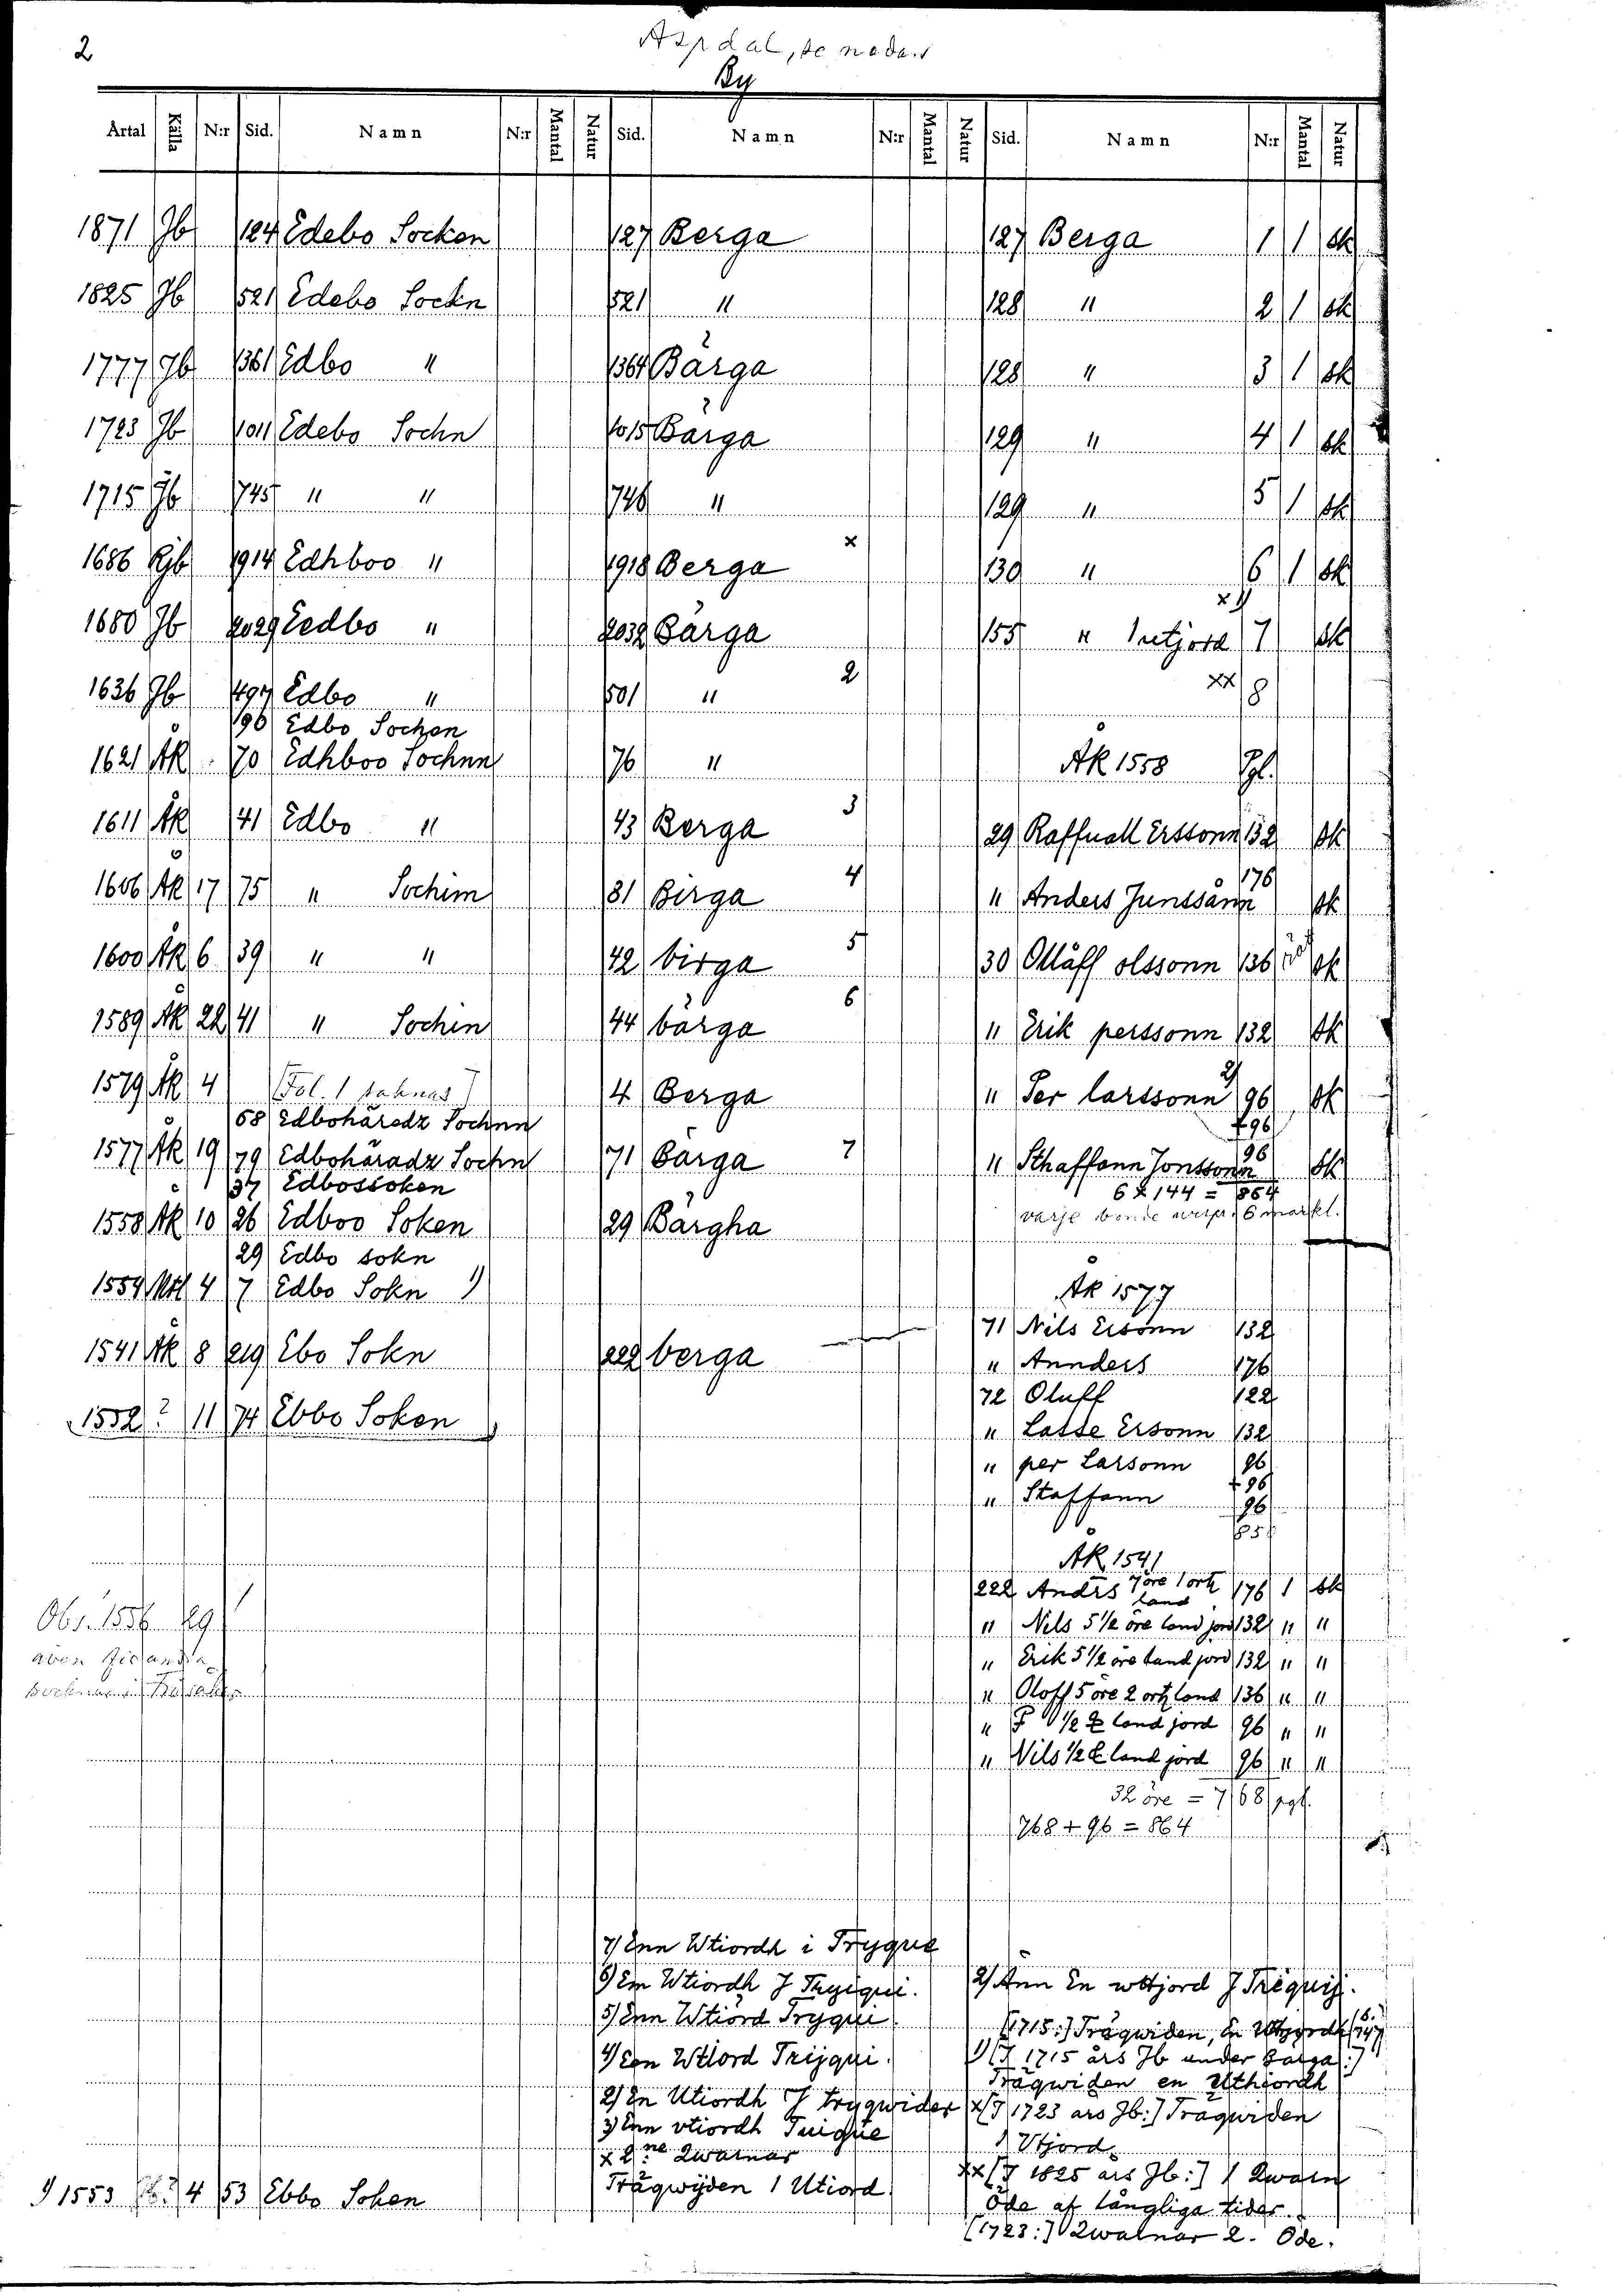 2
Aspdal, se nedan
By
Årtal Källa N:r Sid. Namn N:r Mantal Natur Sid. Namn N:r Mantal Natur Sid. Namn N:r Mantal Natur
1871 Jb 124 Edebo Socken 127 Berga 127 Berga 1 1 sk
1825 Jb 521 Edebo Sockn 521 " 128 " 2 1 sk
1777 Jb 1361 Edbo " 1364 Bärga 128 " 3 1 sk
1723 Jb 1011 Edebo Sochn 1015 Bärga 129 " 4 1 sk
1715 Jb 745 " " 746 " 129 " 5 1 sk
1686 Rjb 1914 Edhboo " 1918 Berga x 130 " 6 1 sk
1680 Jb 2029 Eedbo " 2032 Bärga 155 " 1 utjord x 1) 7 sk
1636 Jb 497 Edbo " 501 " 2 xx 8
196 Edbo Sochen
1621 Åk 70 Edhboo Sochnn 76 " Åk 1558 Pgl.
1611 Åk 41 Edbo " 43 Berga 3 29 Raffuall Erssonn 132 sk
1606 Åk 17 75 " Sochim 81 Birga 4 " Anders Junssånn 176 sk
1600 Åk 6 39 " " 42 birga 5 30 Olläff olssonn 136 sk
1589 Åk 22 41 " Sochin 44 bärga 6 " Erik perssonn 132 sk
1579 Åk 4 [Fol. 1 saknas] 4 Berga " Per larssonn 2) 96 sk
68 Edbohäredz Sochnn +96
1577 Åk 19 79 Edbohäradz Sochn 71 Bärga 7 " Sthaffann Jonssonn 96 sk
37 Edbossoken 6 x 144 = 864
1558 Åk 10 26 Edboo Soken 29 Bärgha varje bonde 6 markl.
29 Edbo sokn
1554 Mtl 4 7 Edbo Sokn 1) Åk 1577
71 Nils Ersonn 132
1541 Åk 8 219 Ebo Sokn 222 berga " Annders 176
72 Oluff 122
1552 ? 11 74 Ebbo Soken " Lasse Ersonn 132
" per Larsonn 96
+96
" Staffann 96
Åk 1541
222 Andrs 7 öre 1 ortz land 176 1 sk
Obs. 1556 " Nils 5 1/2 öre land jord 132 " "
även " Erik 5 1/2 öre land jord 132 " "
" Oloff 5 öre 2 ortz land 136 " "
" P 1/2 land jord 96 " "
" Nils 1/2 land jord 96 " "
32 öre = 768 pgl.
768 + 96 = 864
7) Enn Wtiordh i Tryque
6) Em Wtiordh J Tryiqui.
5) Enn Wtiörd Tryqui
4) Een Wtlord Trijqui.
2) En Utiordh J tryqwider
3) Enn vtiordh Tuique
x 2:ne Qwarnar
Trägwijden 1 Utiord
2) Änn En wttjord J Trequij.
[1715:] Trägwiden, En Uttjordh 747
1) [J 1715 års Jb under Barga:]
Trägwiden en Uthiordh
x/[J 1723 års Jb:] Trägwiden
1 Utjord.
xx/[J 1825 års Jb:] 1 Qwarn
Öde af långliga tider.
[1723:] Qwarnar 2. Öde.
1) 1553 4 53 Ebbo Soken